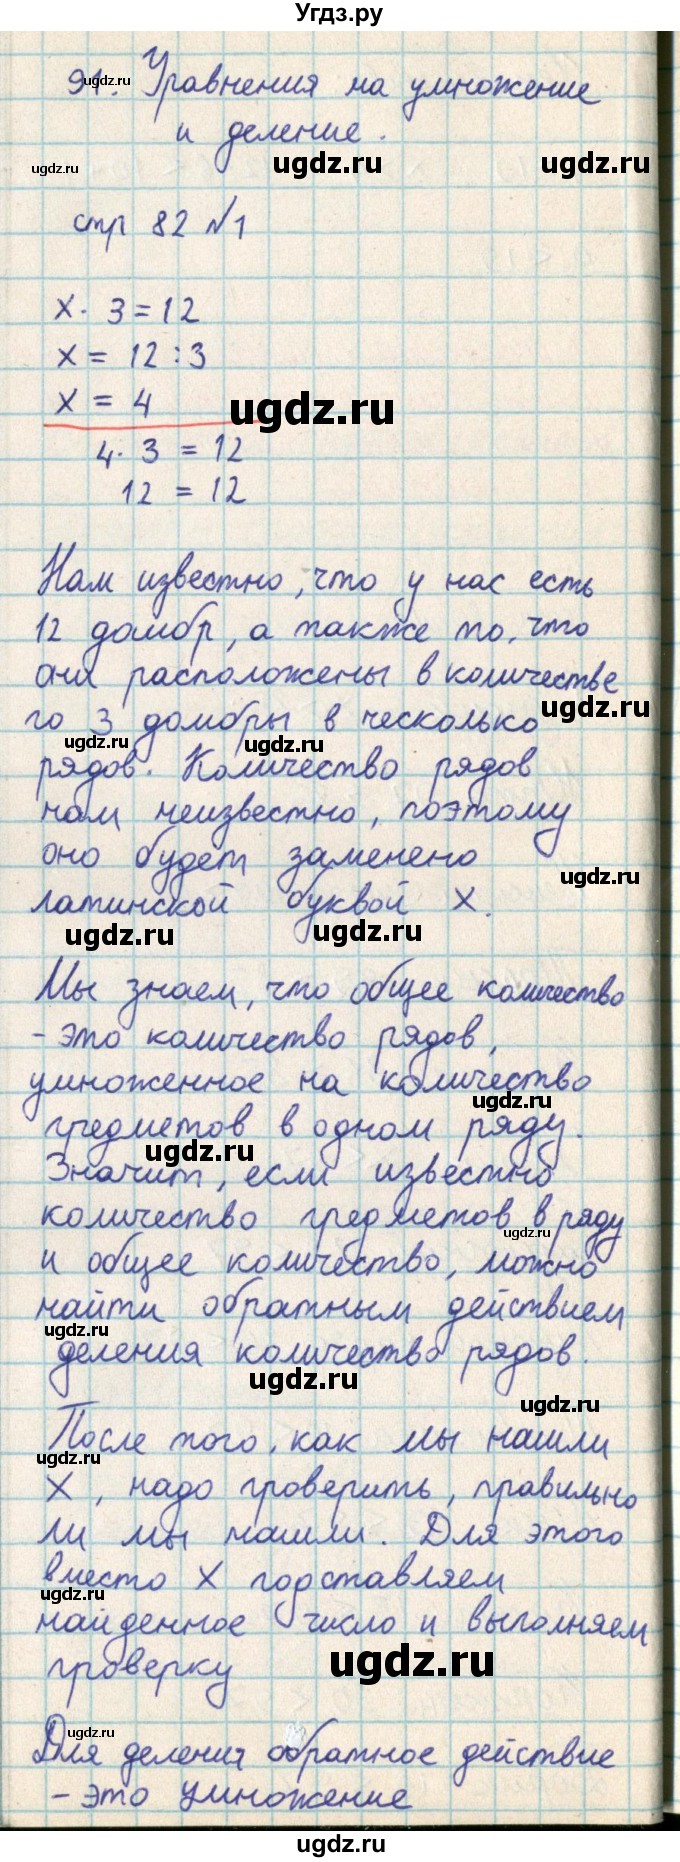 Угдз.ру
91. Уравнения на умножение
и деление.
стр 82 №1
x · 3 = 12
x = 12 : 3
x = 4
4 · 3 = 12
12 = 12
Нам известно, что у нас есть
12 домбр, а также то, что
они расположены в количестве
по 3 домбры в несколько
рядов. Количество рядов
нам неизвестно, поэтому
оно будет заменено
латинской буквой X.
Мы знаем, что общее количество
- это количество рядов,
умноженное на количество
предметов в одном ряду.
Значит, если известно
количество предметов в ряду
и общее количество, можно
найти обратным действием
деления количество рядов.
После того, как мы нашли
X, надо проверить, правильно
ли мы нашли. Для этого
вместо X подставляем
найденное число и выполняем
проверку
Для деления обратное действие
- это умножение
ugdz.ru